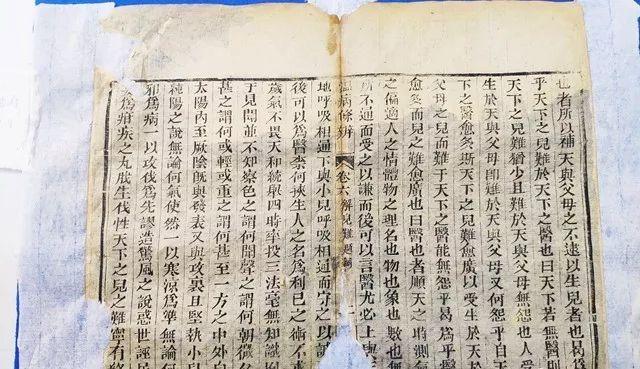 也者所以補天與父母之不逮以生兒者也曷爲
乎天下之兒難於天下之醫也曰天下若無醫
天下之兒難猶少且難於天與父母無怨也人
生於天與父母即難於天與父母又何怨乎自天
下之醫愈多斯天下之兒難愈廣以受生於天於
父母之兒而難于天下之醫能無怨乎曷爲乎醫
愈多而兒之難愈廣也曰醫也者順天之時測氣
之偏適人之情體物之理名也物也象也數也無
所不通而受之以謙而後可以言醫尤必上與
溫病條辨 卷六解兒難 題詞
地呼吸相通下與小兒呼吸相通而守之以誠
後可以爲醫奈何挾生人之名爲利己之術不求
歲氣不畏天和統舉四時率投三法毫無知識
於見聞並不知察色之謂何聞聲之謂何朝微夕
甚之謂何或輕或重之謂何甚至一方之中外自
太陽內至厥陰既與發表又與攻裏且堅執小兒
純陽之說無論何氣使然一以寒涼爲準無論何
邪爲病一以攻伐爲先謬造驚風之說惑世誣民
爲疳疾之丸戕生伐性天下之兒之難寧有終